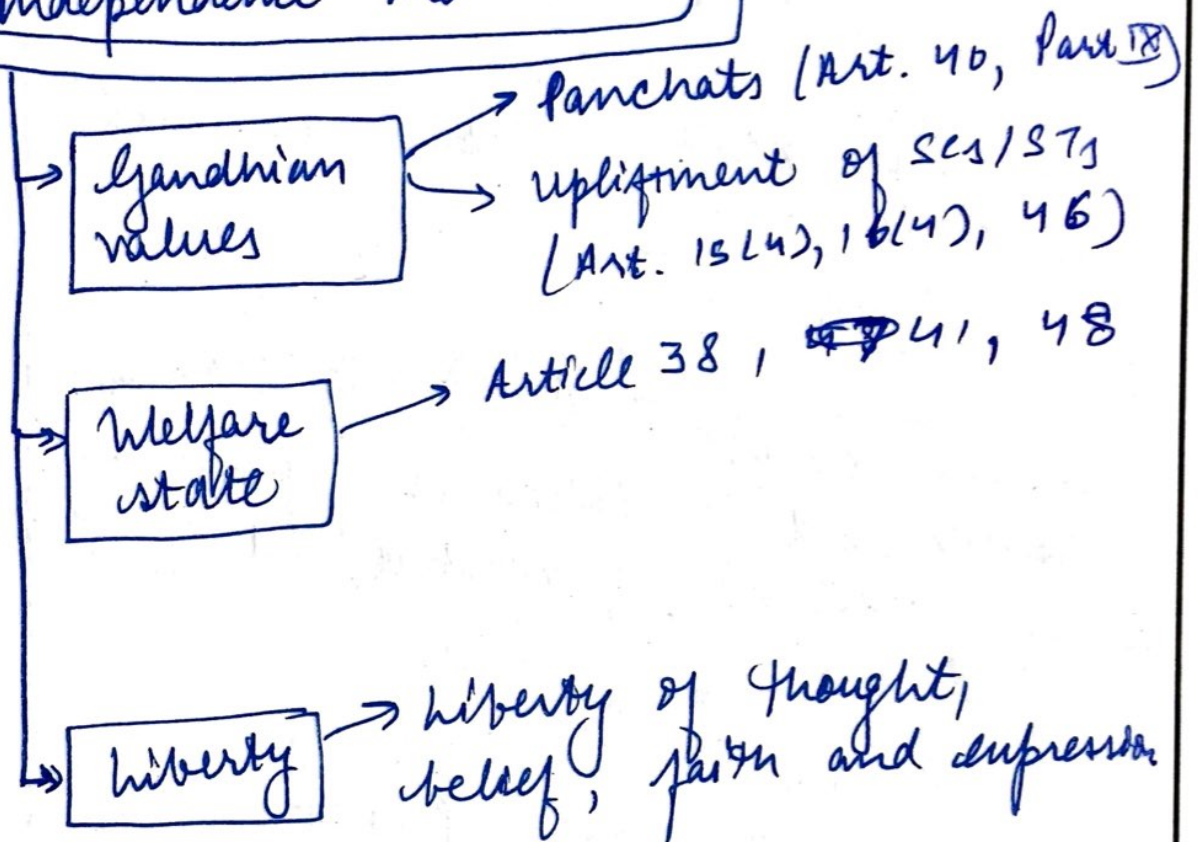 independence
Gandhian
values
Panchats (Art. 40, Part IX)
Upliftment of SCs/STs
(Art. 15(4), 16(4), 46)
Welfare
state
Article 38, 41, 48
Liberty
Liberty of thought,
belief, faith and expression